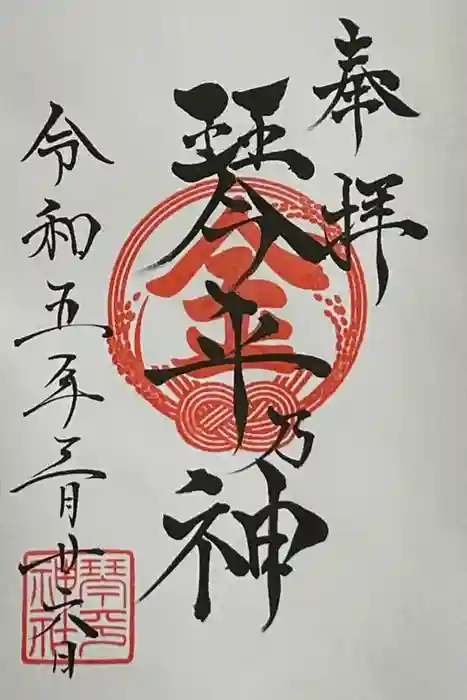 奉拝
琴平乃神
金
令和五年三月廿六日
琴平
神社